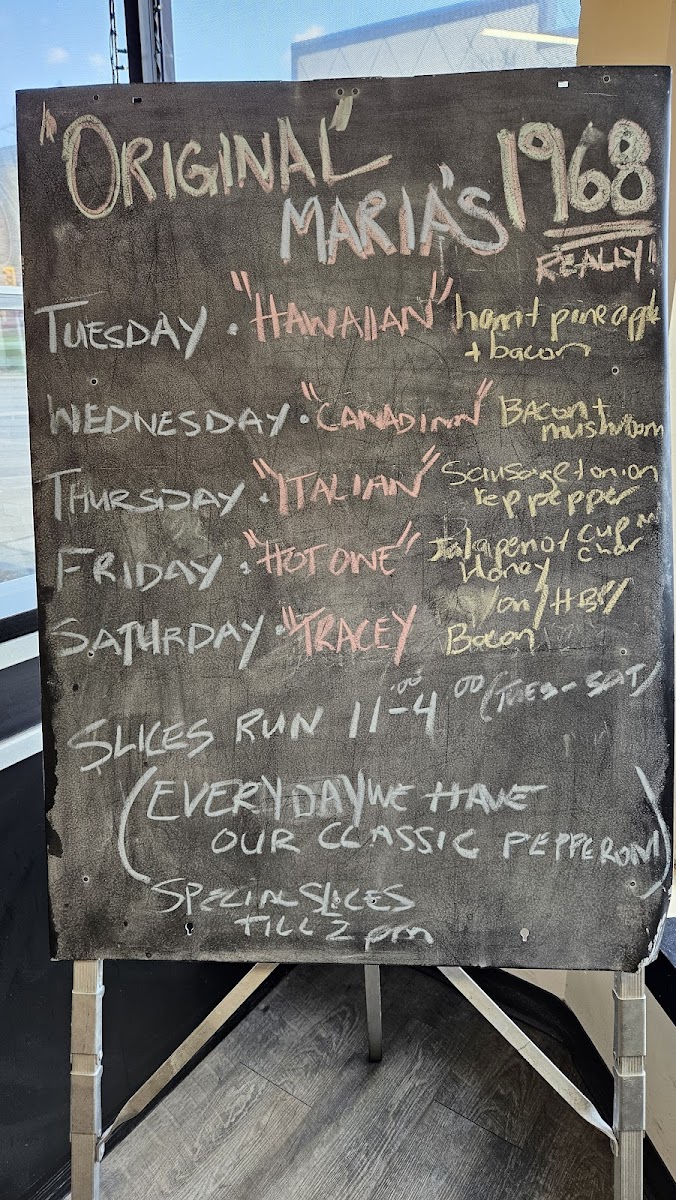 "ORIGINAL" 1968
MARIA'S REALLY!
TUESDAY . "HAWAIIAN" ham + pineapple
+ bacon
WEDNESDAY . "CANADIAN" BACON +
mushroom
THURSDAY . "ITALIAN" Sausage + onion
rep pepper
FRIDAY . "HOT ONE" Jalapeno + cup n
Honey char
SATURDAY . "TRACEY Bacon
SLICES RUN 11-4:00 (TUES - SAT)
(EVERYDAY WE HAVE
OUR CLASSIC PEPPERONI)
SPECIAL SLICES
TILL 2 pm